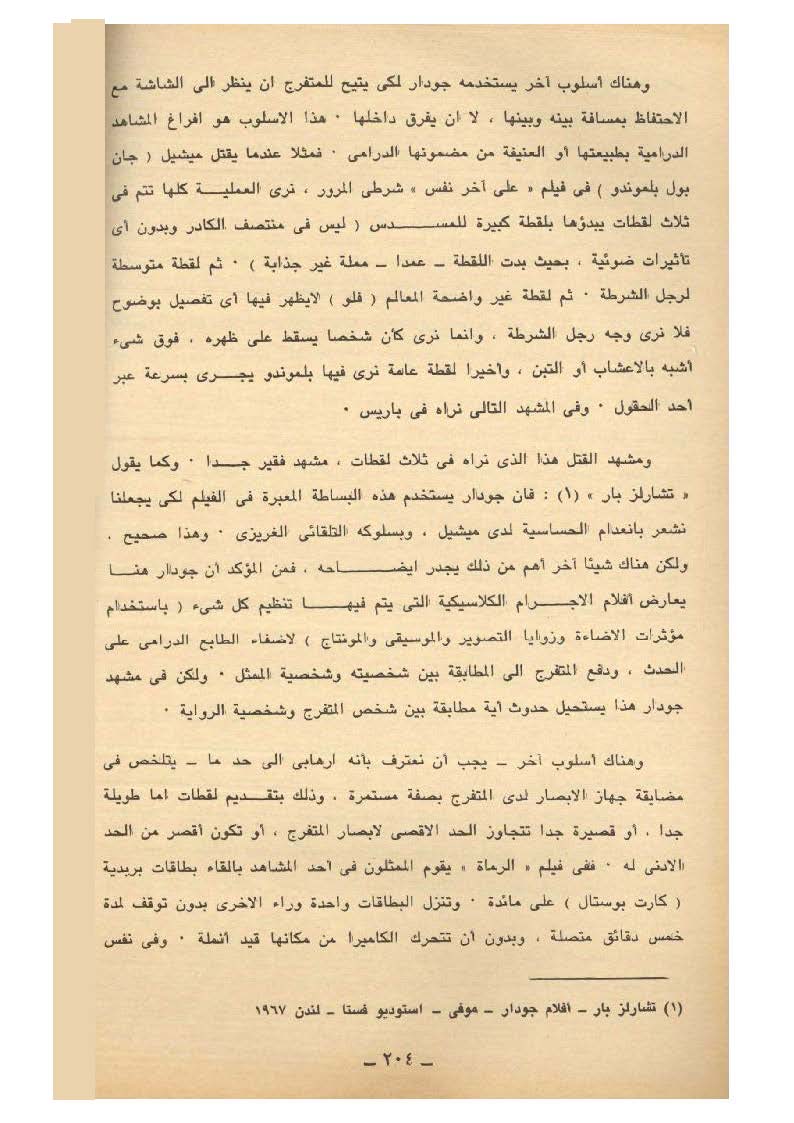 وهناك أسلوب آخر يستخدمه جودار لكى يتيح للمتفرج ان ينظر الى الشاشة مع
الاحتفاظ بمسافة بينه وبينها ، لا ان يغرق داخلها ٠ هذا الاسلوب هو افراغ المشاهد
الدرامية بطبيعتها أو العنيفة من مضمونها الدرامى ٠ فمثلا عندما يقتل ميشيل ( جان
بول بلموندو ) فى فيلم « على آخر نفس » شرطى المرور ، نرى العمليـــة كلها تتم فى
ثلاث لقطات يبدؤها بلقطة كبيرة للمســـــدس ( ليس فى منتصف الكادر وبدون أى
تأثيرات ضوئية ، بحيث بدت اللقطة ــ عمدا ــ مملة غير جذابة ) ٠ ثم لقطة متوسطة
لرجل الشرطة ٠ ثم لقطة غير واضحة المعالم ( فلو ) لايظهر فيها أى تفصيل بوضوح
فلا نرى وجه رجل الشرطة ، وانما نرى كأن شخصا يسقط على ظهره ، فوق شىء
أشبه بالاعشاب أو التبن ، وأخيرا لقطة عامة نرى فيها بلموندو يجــرى بسرعة عبر
أحد الحقول ٠ وفى المشهد التالى نراه فى باريس ٠
ومشهد القتل هذا الذى نراه فى ثلاث لقطات ، مشهد فقير جـــدا ٠ وكما يقول
« تشارلز بار » (١) : فان جودار يستخدم هذه البساطة المعبرة فى الفيلم لكى يجعلنا
نشعر بانعدام الحساسية لدى ميشيل ، وبسلوكه التلقائى الغريزى ٠ وهذا صحيح ،
ولكن هناك شيئا آخر أهم من ذلك يجدر ايضـــــاحه ، فمن المؤكد أن جودار هنـــا
يعارض أفلام الاجـــرام الكلاسيكية التى يتم فيهـــا تنظيم كل شىء ( باستخدام
مؤثرات الاضاءة وزوايا التصوير والموسيقى والمونتاج ) لاضفاء الطابع الدرامى على
الحدث ، ودفع المتفرج الى المطابقة بين شخصيته وشخصية الممثل ٠ ولكن فى مشهد
جودار هذا يستحيل حدوث أية مطابقة بين شخص المتفرج وشخصية الرواية ٠
وهناك أسلوب آخر ــ يجب أن نعترف بأنه ارهابى الى حد ما ــ يتلخص فى
مضايقة جهاز الابصار لدى المتفرج بصفة مستمرة ، وذلك بتقـــديم لقطات اما طويلة
جدا ، أو قصيرة جدا تتجاوز الحد الاقصى لابصار المتفرج ، أو تكون أقصر من الحد
الادنى له ٠ ففى فيلم « الرماة » يقوم الممثلون فى أحد المشاهد بالقاء بطاقات بريدية
( كارت بوستال ) على مائدة ٠ وتنزل البطاقات واحدة وراء الاخرى بدون توقف لمدة
خمس دقائق متصلة ، وبدون أن تتحرك الكاميرا من مكانها قيد أنملة ٠ وفى نفس
(١) تشارلز بار ــ افلام جودار ــ موفى ــ استوديو فستا ــ لندن ١٩٦٧
ــ ٢٠٤ ــ